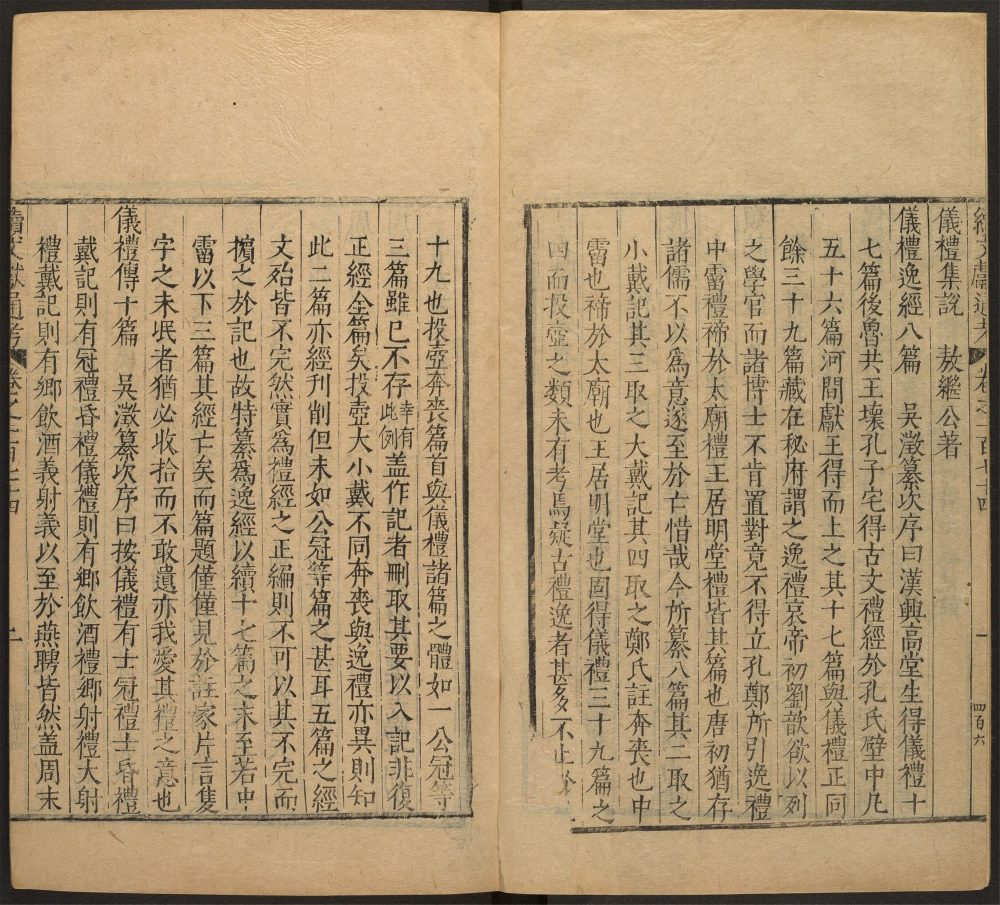 續文獻通考 卷之一百七十四
一
四百六
儀禮集説 敖繼公著
儀禮逸經八篇 吳澂纂次序曰漢興高堂生得儀禮十
七篇後魯共王壞孔子宅得古文禮經於孔氏壁中凡
五十六篇河間獻王得而上之其十七篇與儀禮正同
餘三十九篇藏在秘府謂之逸禮哀帝初劉歆欲以列
之學官而諸博士不肯置對竟不得立孔鄭所引逸禮
中霤禮禘於太廟禮王居明堂禮皆其篇也唐初猶存
諸儒不以爲意遂至於亡惜哉今所纂八篇其二取之
小戴記其三取之大戴記其四取之鄭氏註奔喪也中
霤也禘於太廟也王居明堂也固得儀禮三十九篇之
四而投壺之類未有考焉疑古禮逸者甚多不止於三
十九也投壺奔喪篇首與儀禮諸篇之體如一公冠等
三篇雖已不存幸有此例盖作記者刪取其要以入記非復
正經全篇矣投壺大小戴不同奔喪與逸禮亦異則知
此二篇亦經刊削但未如公冠等篇之甚耳五篇之經
文殆皆不完然實爲禮經之正編則不可以其不完而
擯之於記也故特纂爲逸經以續十七篇之末至若中
霤以下三篇其經亡矣而篇題僅僅見於註家片言隻
字之未泯者猶必收拾而不敢遺亦我愛其禮之意也
儀禮傳十篇 吳澂纂次序曰按儀禮有士冠禮士昏禮
戴記則有冠禮昏禮儀禮則有鄉飲酒禮鄉射禮大射
禮戴記則有鄉飲酒義射義以至於燕聘皆然盖周末
續文獻通考 卷之一百七十四
二